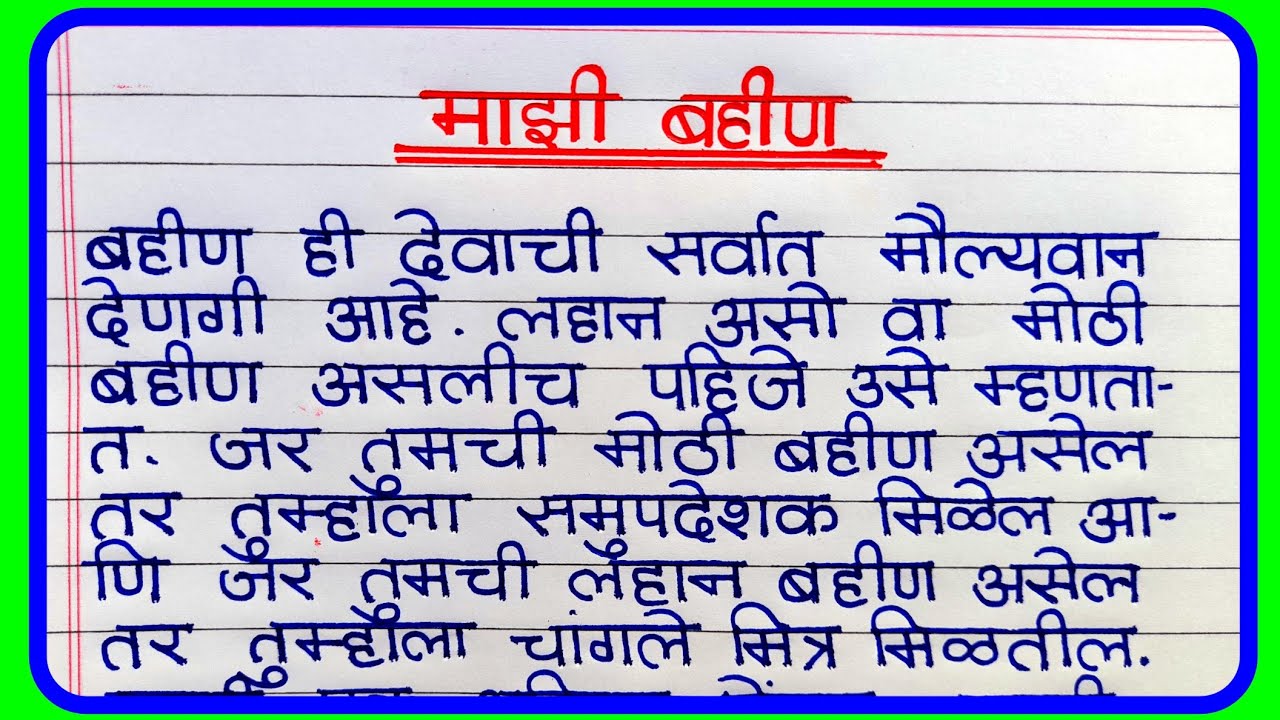 माझी बहीण
बहीण ही देवाची सर्वात मौल्यवान
देणगी आहे. लहान असो वा मोठी
बहीण असलीच पहिजे उसे म्हणता-
त. जर तुमची मोठी बहीण असेल
तर तुम्हाला समुपदेशक मिळेल आ-
णि जर तुमची लहान बहीण असेल
तर तुम्हाला चांगले मित्र मिळतील.